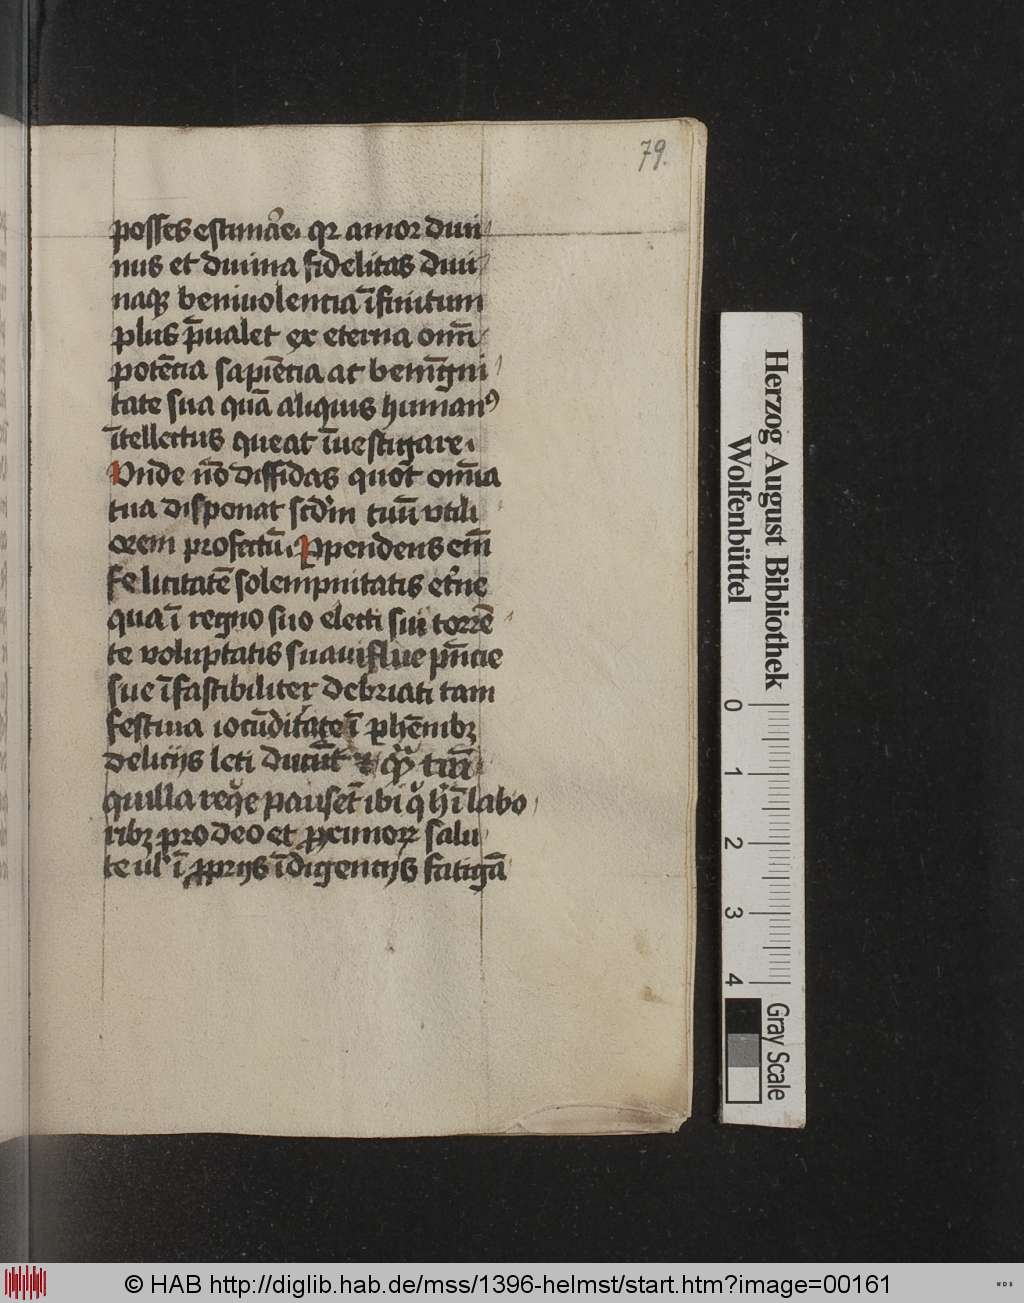 79.
posses estimare. qr amor diui
nus et diuina fidelitas diui
naqz beniuolencia īfinitum
plus p̄ualet ex eterna om̄i
potēcia sapiēcia ac benīgni
tate sua quā aliquis humanꝰ
ītellectus queat īuestigare.
Vnde nō diffidas quot om̄ia
tua disponat scd'm tuū vtili
orem profectū. Ppendens em̄
felicitatē solempnitatis et'ne
qua ī regno suo electi sui torrē
te voluptatis suauiflue pn̄cie
sue īfastibiliter debriati tam
festiua iocūditate ī phēnibz
delicijs leti ducūt
quilla reqͥe pauset ibi qͥ hͥ ī labo
ribz pro deo et ꝓximorꝝ salu
te ul' ī ꝓprijs īdigencijs fatigā
Herzog August Bibliothek
Wolfenbüttel
0 1 2 3 4
Gray Scale
© HAB http://diglib.hab.de/mss/1396-helmst/start.htm?image=00161